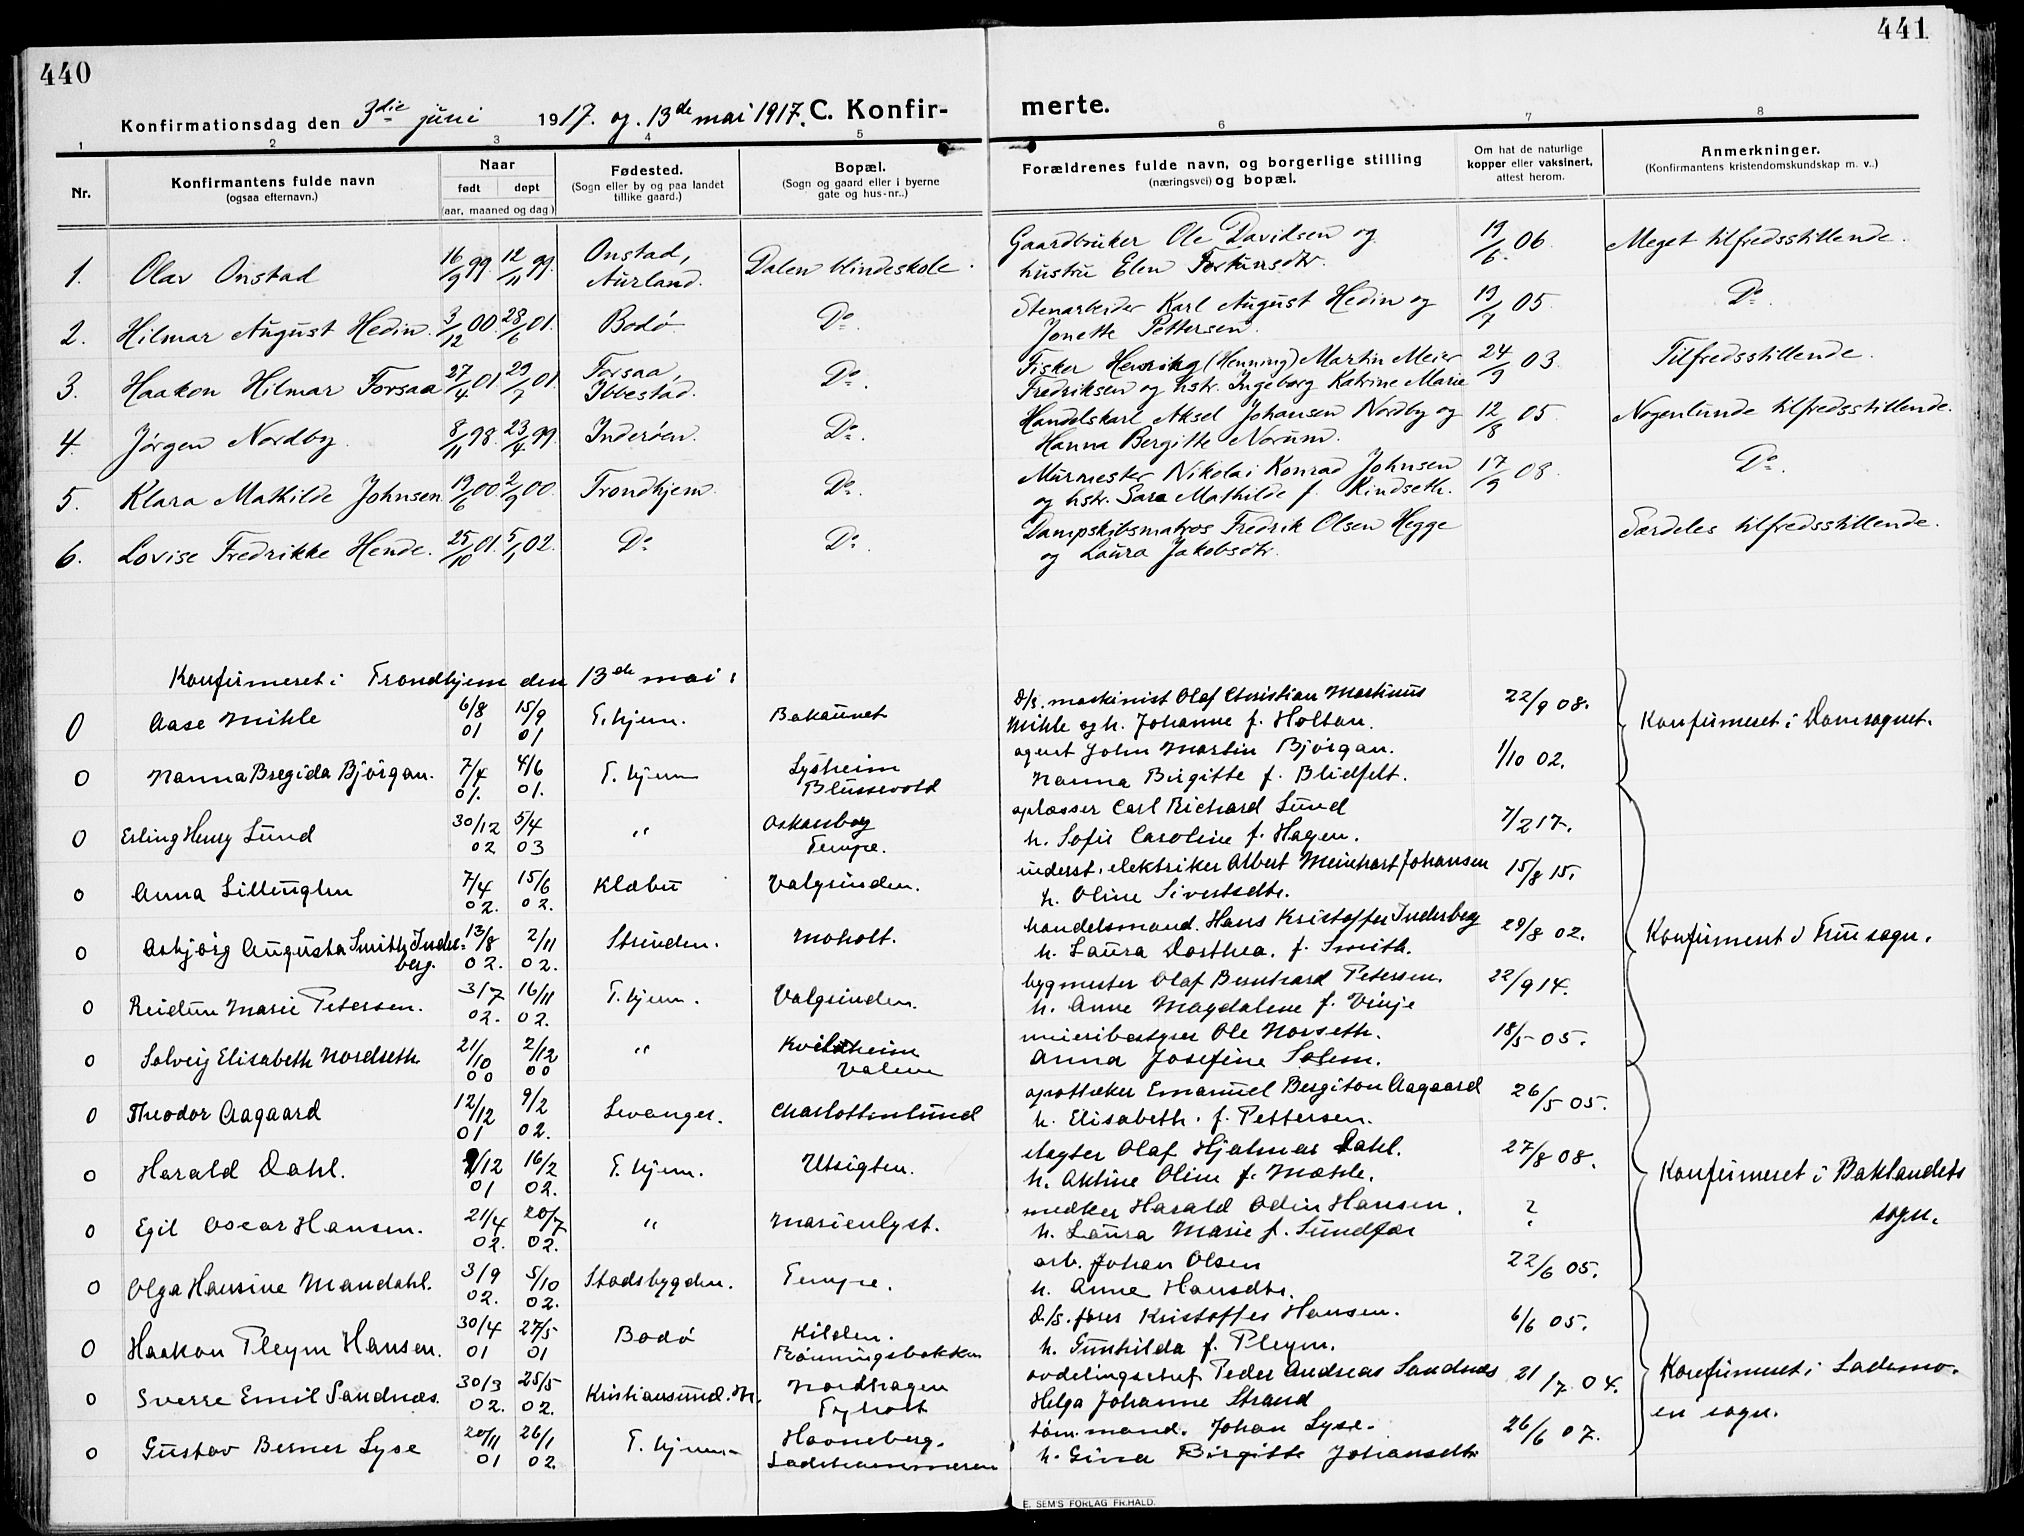 440
441
Konfirmationsdag den 3die juni 1917. og 13de mai 1917. C. Konfir-
merte.
1 2 3 4 5 6 7 8
Nr.
Konfirmantens fulde navn
(ogsaa efternavn.)
Naar
født døpt
(aar, maaned og dag)
Fødested.
(Sogn eller by og paa landet
tillike gaard.)
Bopæl.
(Sogn og gaard eller i byerne
gate og hus-nr..)
Forældrenes fulde navn, og borgerlige stilling
(næringsvei) og bopæl.
Om hat de naturlige
kopper eller vaksinert,
attest herom.
Anmerkninger.
(Konfirmantens kristendomskundskap m. v..)
1. Olav Onstad 16/9 99 12/11 99. Onstad, Aurland. Dalen blindeskole. Gaardbruker Ole Davidsen og
hustru Elen Fortunsdtr. 19/6 06. Meget tilfredsstillende.
2. Hilmar August Hedin. 3/12 00. 28/6 01. Bodø Do. Stenarbeider Karl August Hedin og
Jonette Pettersen. 19/7 05. Do.
3. Haakon Hilmar Forsaa 27/4 01 29/7 01. Forsaa, Ibbestad. Do. Fisker Henrik (Henning) Martin Meier
Fredriksen og hstr. Ingeborg Katrine Marie 24/9 03. Tilfredsstillende.
4. Jørgen Nordby. 8/11 98. 23/4 99. Inderøen. Do. Handelskarl Aksel Johansen Nordby og
Hanna Bergitte Norum. 12/8 05. Nogenlunde tilfredsstillende.
5. Klara Mathilde Johnsen 19/6 00 2/9 00. Trondhjem. Do. Murmester Nikolai Konrad Johnsen
og hstr. Sara Mathilde f. Kindseth. 17/9 08. Do.
6. Lovise Fredrikke Hende. 25/10 01. 5/1 02. Do Do. Dampskibsmatros Fredrik Olsen Hegge
og Laura Jakobsdtr. Særdeles tilfredsstillende.
Konfirmeret i Trondhjem den 13de mai:
0 Aase Mihle 6/8 01 15/9 01 T.hjem. Bakaunet D/s. maskinist Olaf Christian Martinus
Mihle og h. Johanne f. Holtan. 22/9 08. Konfirmeret i Domsognet.
0 Nanna Bregida Bjørgan. 7/4 01. 4/6 01. T.hjem Lysheim
Blussevold agent John Martin Bjørgan.
Nanna Birgitte f. Blidfelt. 1/10 02.
0 Erling Henry Lund 30/12 02 5/4 03 " Oskarsborg
Tempe. opladser Carl Richard Lund
h. Sofie Caroline f. Hagen. 7/2 17.
0 Anna Lillenglen 7/4 02. 15/6 02. Klæbu Valgrinden. inderst. elektriker Albert Meinhart Johansen
h. Oline Sivertsdtr. 15/8 15.
0 Asbjørg Augusta Smith Inder-
berg. 13/8 02. 2/11 02. Strinden. Moholt. handelsmand. Hans Kristoffer Inderberg
h. Laura Dorthea. f. Smith. 29/8 02. Konfirmeret i Frue sogn.
0 Reidun Marie Petersen. 3/7 02. 16/11 02. T.hjem. Valgrinden. bygmester Olaf Bernhard Petersen.
h. Anne Magdalene f. Vinje 22/9 14.
0 Solveig Elisabeth Nordseth 21/10 00 2/12 00 " Kvildheim
Valene meieribestyrer Ole Norseth.
Anna Josefine Solem. 18/5 05.
0 Theodor Aagaard 12/12 01 9/2 02. Levanger. Charlottenlund apotheker Emanuel Bergiton Aagaard
h. Elisabeth. f. Pettersen. 26/5 05.
0 Harald Dahl. /12 01 16/2 02. T.hjem. Utsigten. slagter Olaf Hjalmar Dahl.
h. Aktine Oline f. Mæhle. 27/8 08. Konfirmeret i Baklandets
sogn.
0 Egil Oscar Hansen. 21/4 02. 20/7 02. " Marienlyst. snedker Harald Odin Hansen.
h. Laura Marie f. Sundfær ?
0 Olga Hansine Mandahl. 3/9 02. 5/10 02. Stadsbygden. Tempe. arb. Johan Olsen
h. Anne Hansdtr. 22/6 05.
0 Haakon Pleym Hansen. 30/4 01 27/5 01 Bodø Kilden.
Rønningsbakken D/s. fører Kristoffer Hansen.
h. Gunhilda f. Pleym. 6/6 05.
0 Sverre Emil Sandnæs. 30/3 02. 25/5 02. Kristiansund. N. Nordhagen
Tyholt avdelingschef Peder Andreas Sandnæs
Helga Johanne Strand 21/7 04. Konfirmeret i Lademo-
en sogn.
0 Gustav Berner Lyse 20/11 01 26/1 02. T.hjem Havneberg.
Ladehammeren tøm.mand. Johan Lyse.
h. Gina Birgitte Johansdtr 26/6 07.
E. SEM'S FORLAG FR.HALD.